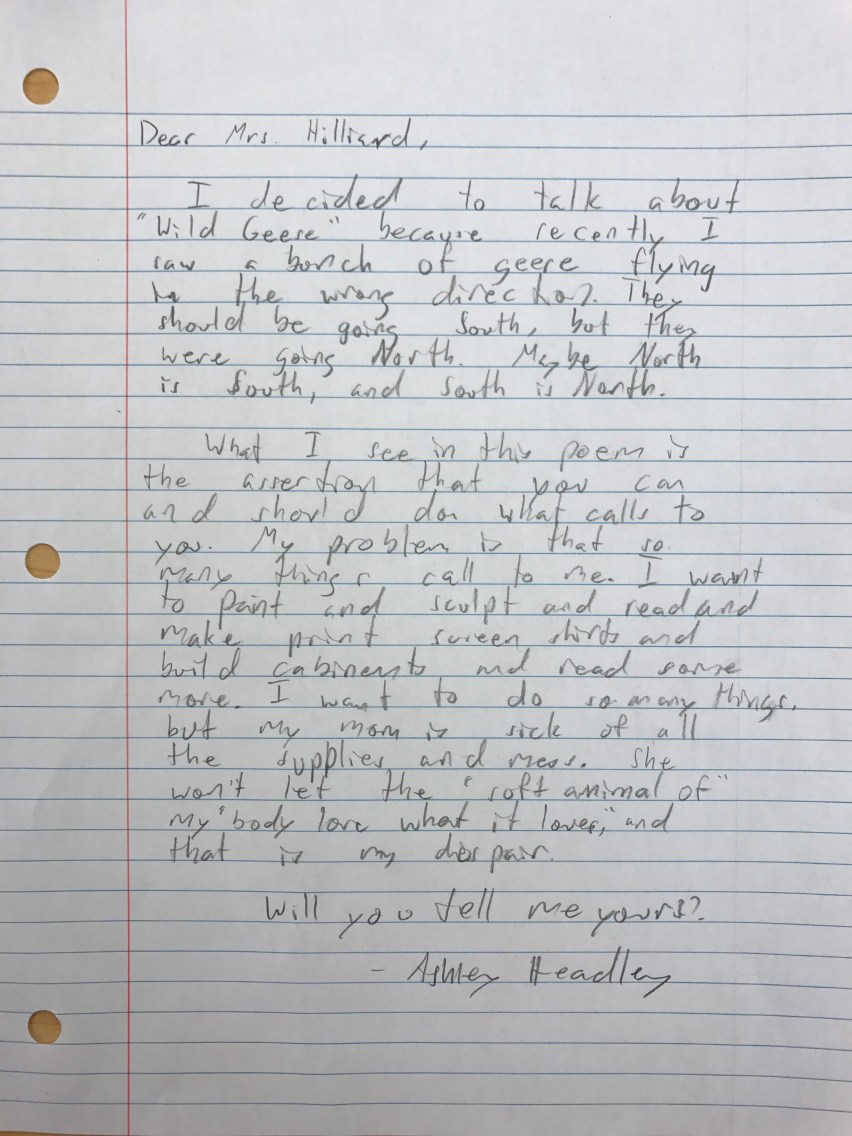 Dear Mrs. Hilliard,
I decided to talk about
"Wild Geese" because recently I
saw a bunch of geese flying
in the wrong direction. They
should be going South, but they
were going North. Maybe North
is South, and South is North.
What I see in this poem is
the assertion that you can
and should do what calls to
you. My problem is that so
many things call to me. I want
to paint and sculpt and read and
make print screen shirts and
build cabinents and read some
more. I want to do so many things.
but my mom is sick of all
the supplies and mess. She
won't let the "soft animal of"
my "body love what it loves," and
that is my despair.
Will you tell me yours?
- Ashley Headley